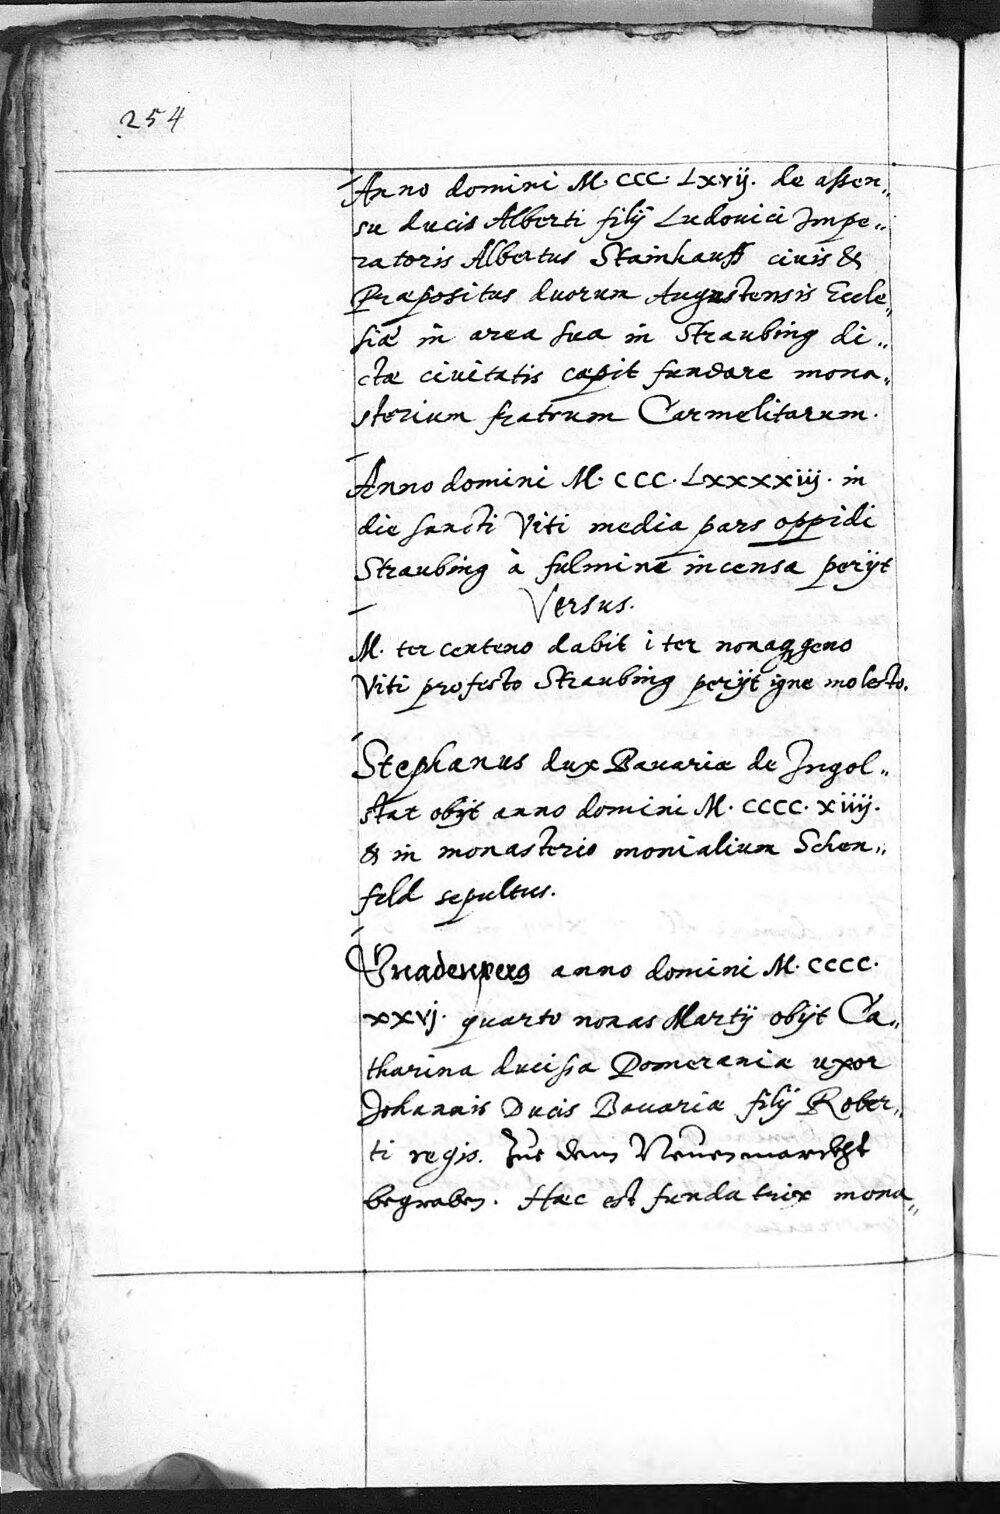 254
Anno domini M. CCC. Lxvij. de assen„
su ducis Alberti filij Ludouici Impe„
ratoris Albertus Stainhauff ciuis &
Præpositus duorum Augustensis Eccle„
siæ in area sua in Straubing di„
ctæ ciuitatis cæpit fundare mona„
sterium fratrum Carmelitarum.
Anno domini M. CCC. Lxxxxiij. in
die sancti Viti media pars oppidi
Straubing à fulmine incensa perijt
Versus.
M. ter centeno dabit i ter nonageno
Viti profesto Straubing perijt igne molesto.
Stephanus dux Bauariæ de Ingol„
stat obijt anno domini M. CCCC. xiiij.
& in monasterio monialium Schen„
feld sepultus.
Gnadenperg anno domini M. CCCC.
xxvj. quarto nonas Martij obijt Ca„
tharina ducissa Pomeraniæ uxor
Johannis Ducis Bauariæ filij Rober„
ti regis. Zue dem Neuenmarckht
begraben. Hæc est fundatrix mona„